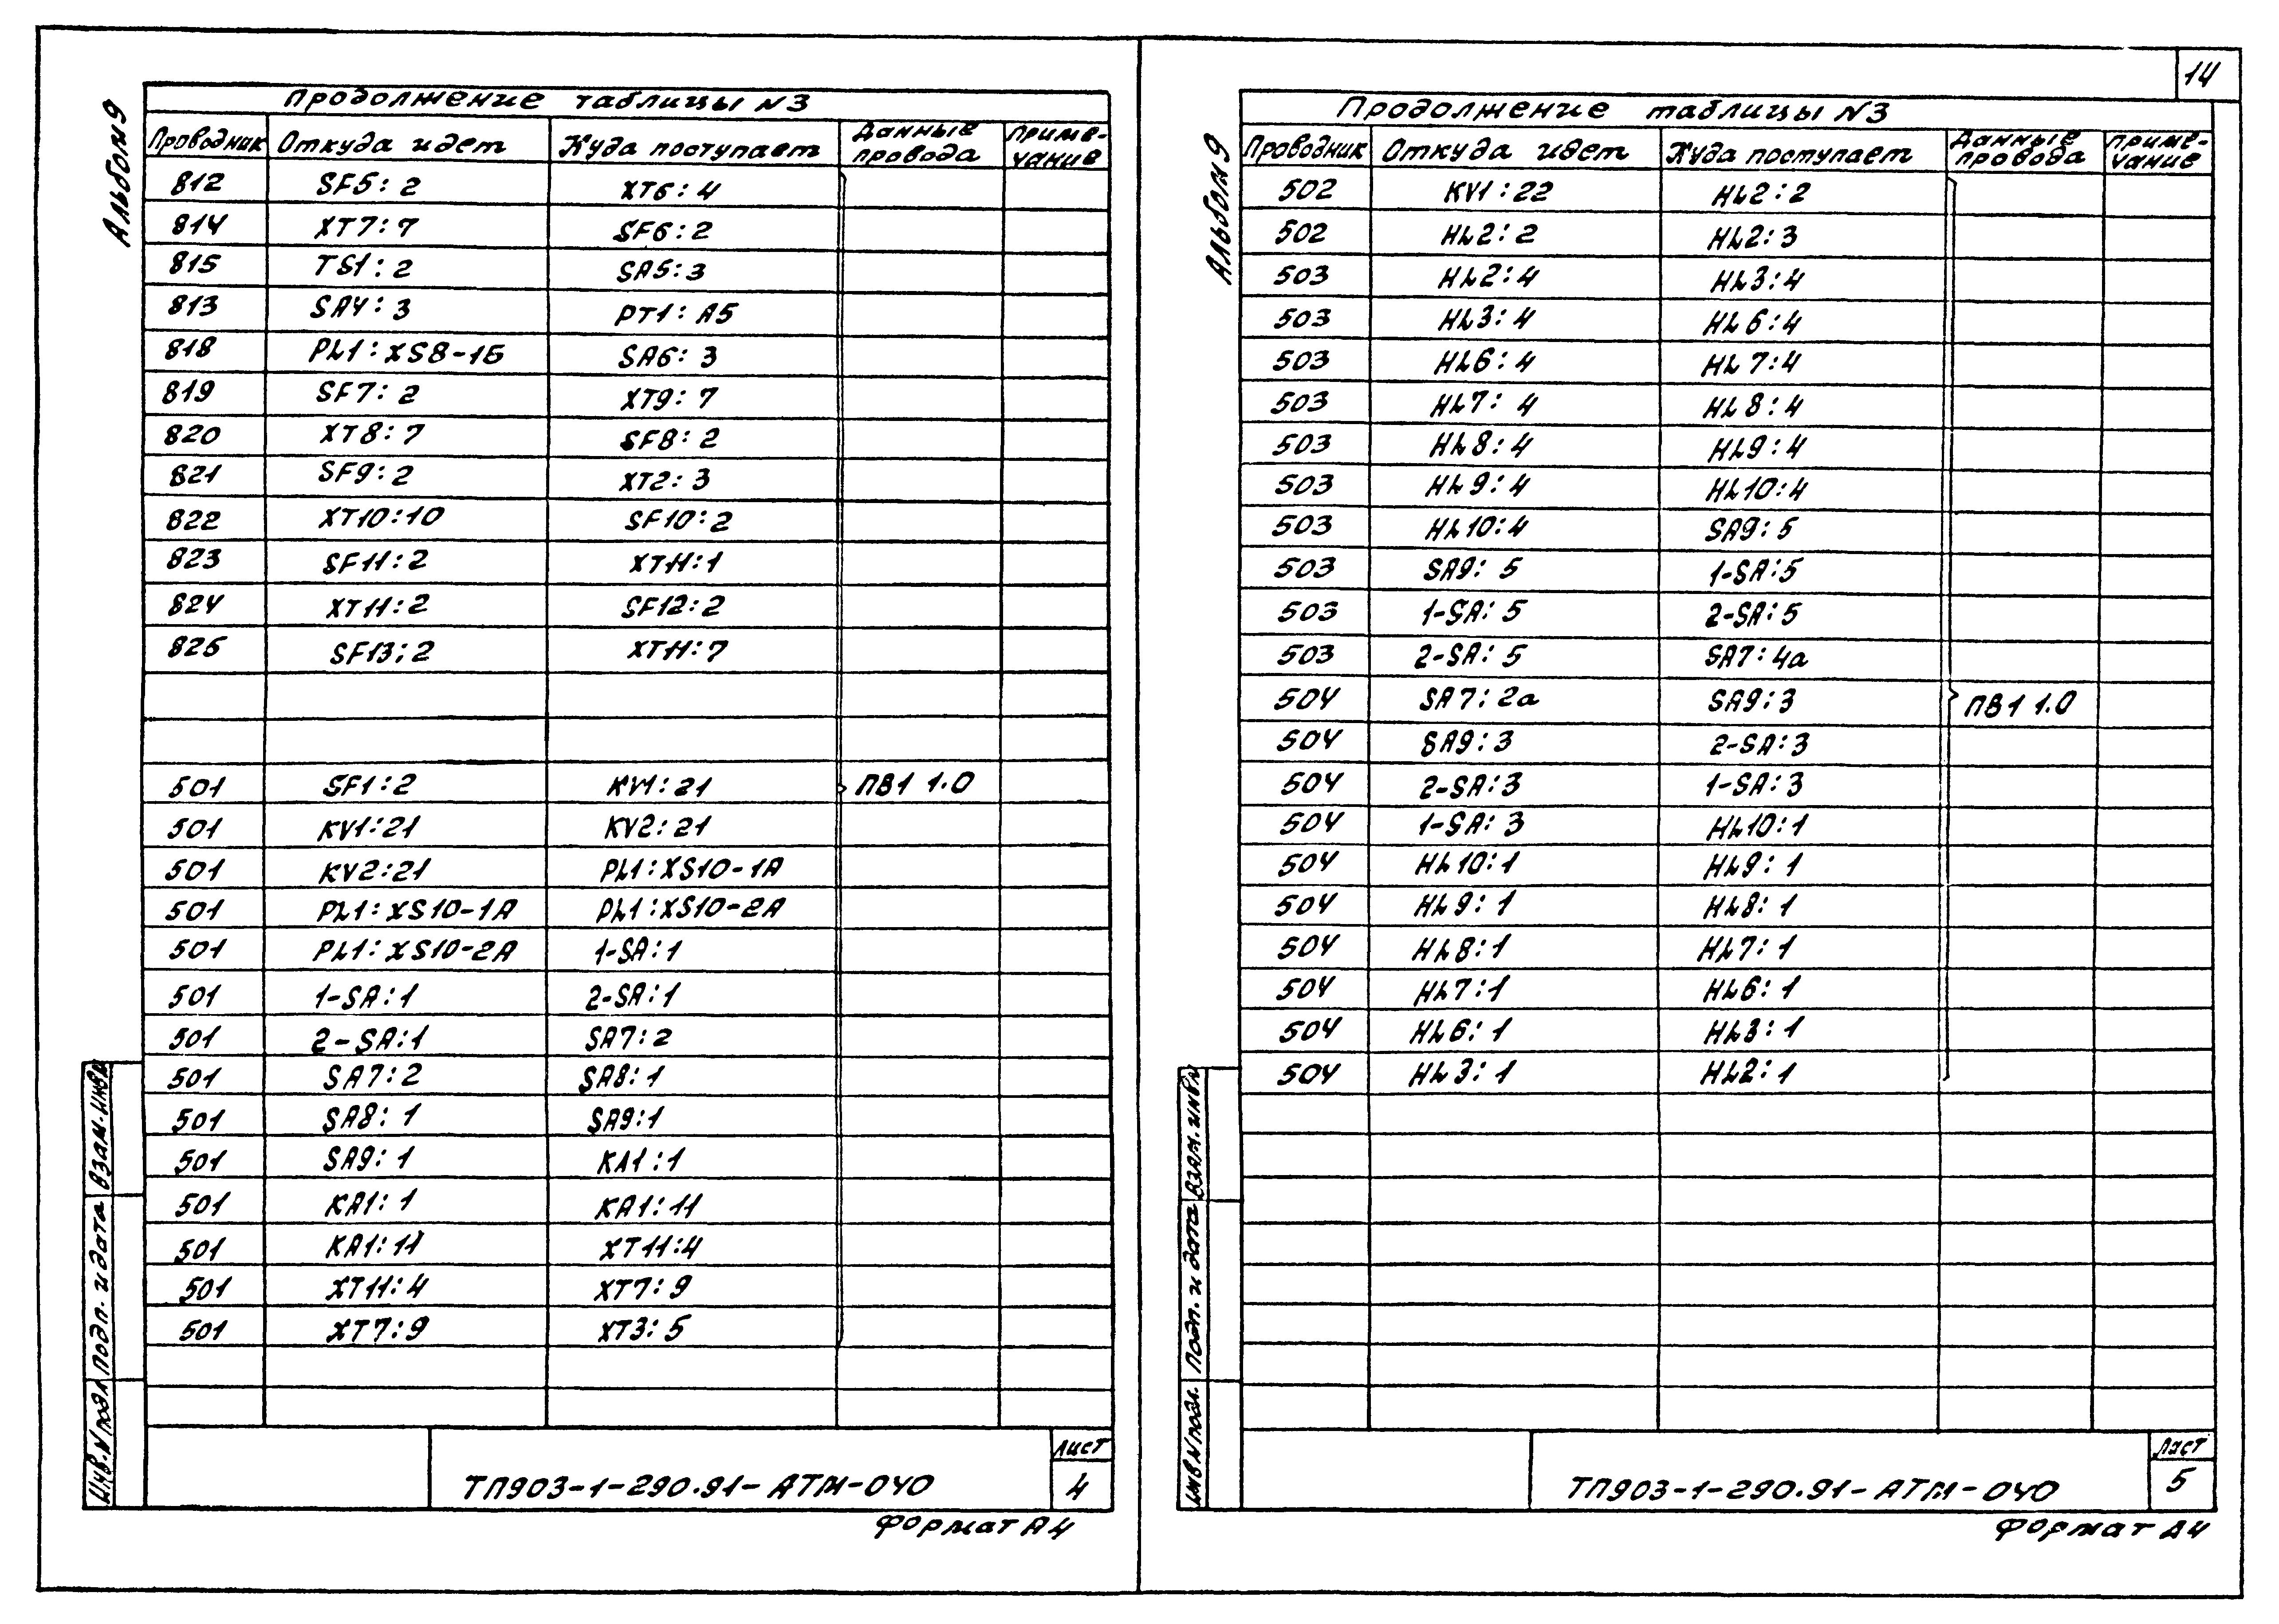 14
Альбом 9
Продолжение таблицы N3
Проводник Откуда идет Куда поступает Данные провода Приме-чание
812 SF5:2 XT6:4
814 XT7:7 SF6:2
815 TS1:2 SA5:3
813 SA4:3 PT1:A5
818 PL1:XS8-1Б SA6:3
819 SF7:2 XT9:7
820 XT8:7 SF8:2
821 SF9:2 XT2:3
822 XT10:10 SF10:2
823 SF11:2 XT11:1
824 XT11:2 SF12:2
825 SF13:2 XT11:7
501 SF1:2 KV1:21 ПВ1 1.0
501 KV1:21 KV2:21
501 KV2:21 PL1:XS10-1A
501 PL1:XS10-1A PL1:XS10-2A
501 PL1:XS10-2A 1-SA:1
501 1-SA:1 2-SA:1
501 2-SA:1 SA7:2
501 SA7:2 SA8:1
501 SA8:1 SA9:1
501 SA9:1 KA1:1
501 KA1:1 KA1:11
501 KA1:11 XT11:4
501 XT11:4 XT7:9
501 XT7:9 XT3:5
Инв.N подл Подп. и дата Взам.инв.N
ТП903-1-290.91-АТМ-040
Лист
4
Формат А4
Альбом 9
Продолжение таблицы N3
Проводник Откуда идет Куда поступает Данные провода Приме-чание
502 KV1:22 HL2:2
502 HL2:2 HL2:3
503 HL2:4 HL3:4
503 HL3:4 HL6:4
503 HL6:4 HL7:4
503 HL7:4 HL8:4
503 HL8:4 HL9:4
503 HL9:4 HL10:4
503 HL10:4 SA9:5
503 SA9:5 1-SA:5
503 1-SA:5 2-SA:5
503 2-SA:5 SA7:4а
504 SA7:2а SA9:3 ПВ1 1.0
504 SA9:3 2-SA:3
504 2-SA:3 1-SA:3
504 1-SA:3 HL10:1
504 HL10:1 HL9:1
504 HL9:1 HL8:1
504 HL8:1 HL7:1
504 HL7:1 HL6:1
504 HL6:1 HL3:1
504 HL3:1 HL2:1
Инв.N подл. Подп. и дата Взам.инв.N
ТП903-1-290.91-АТМ-040
Лист
5
Формат А4